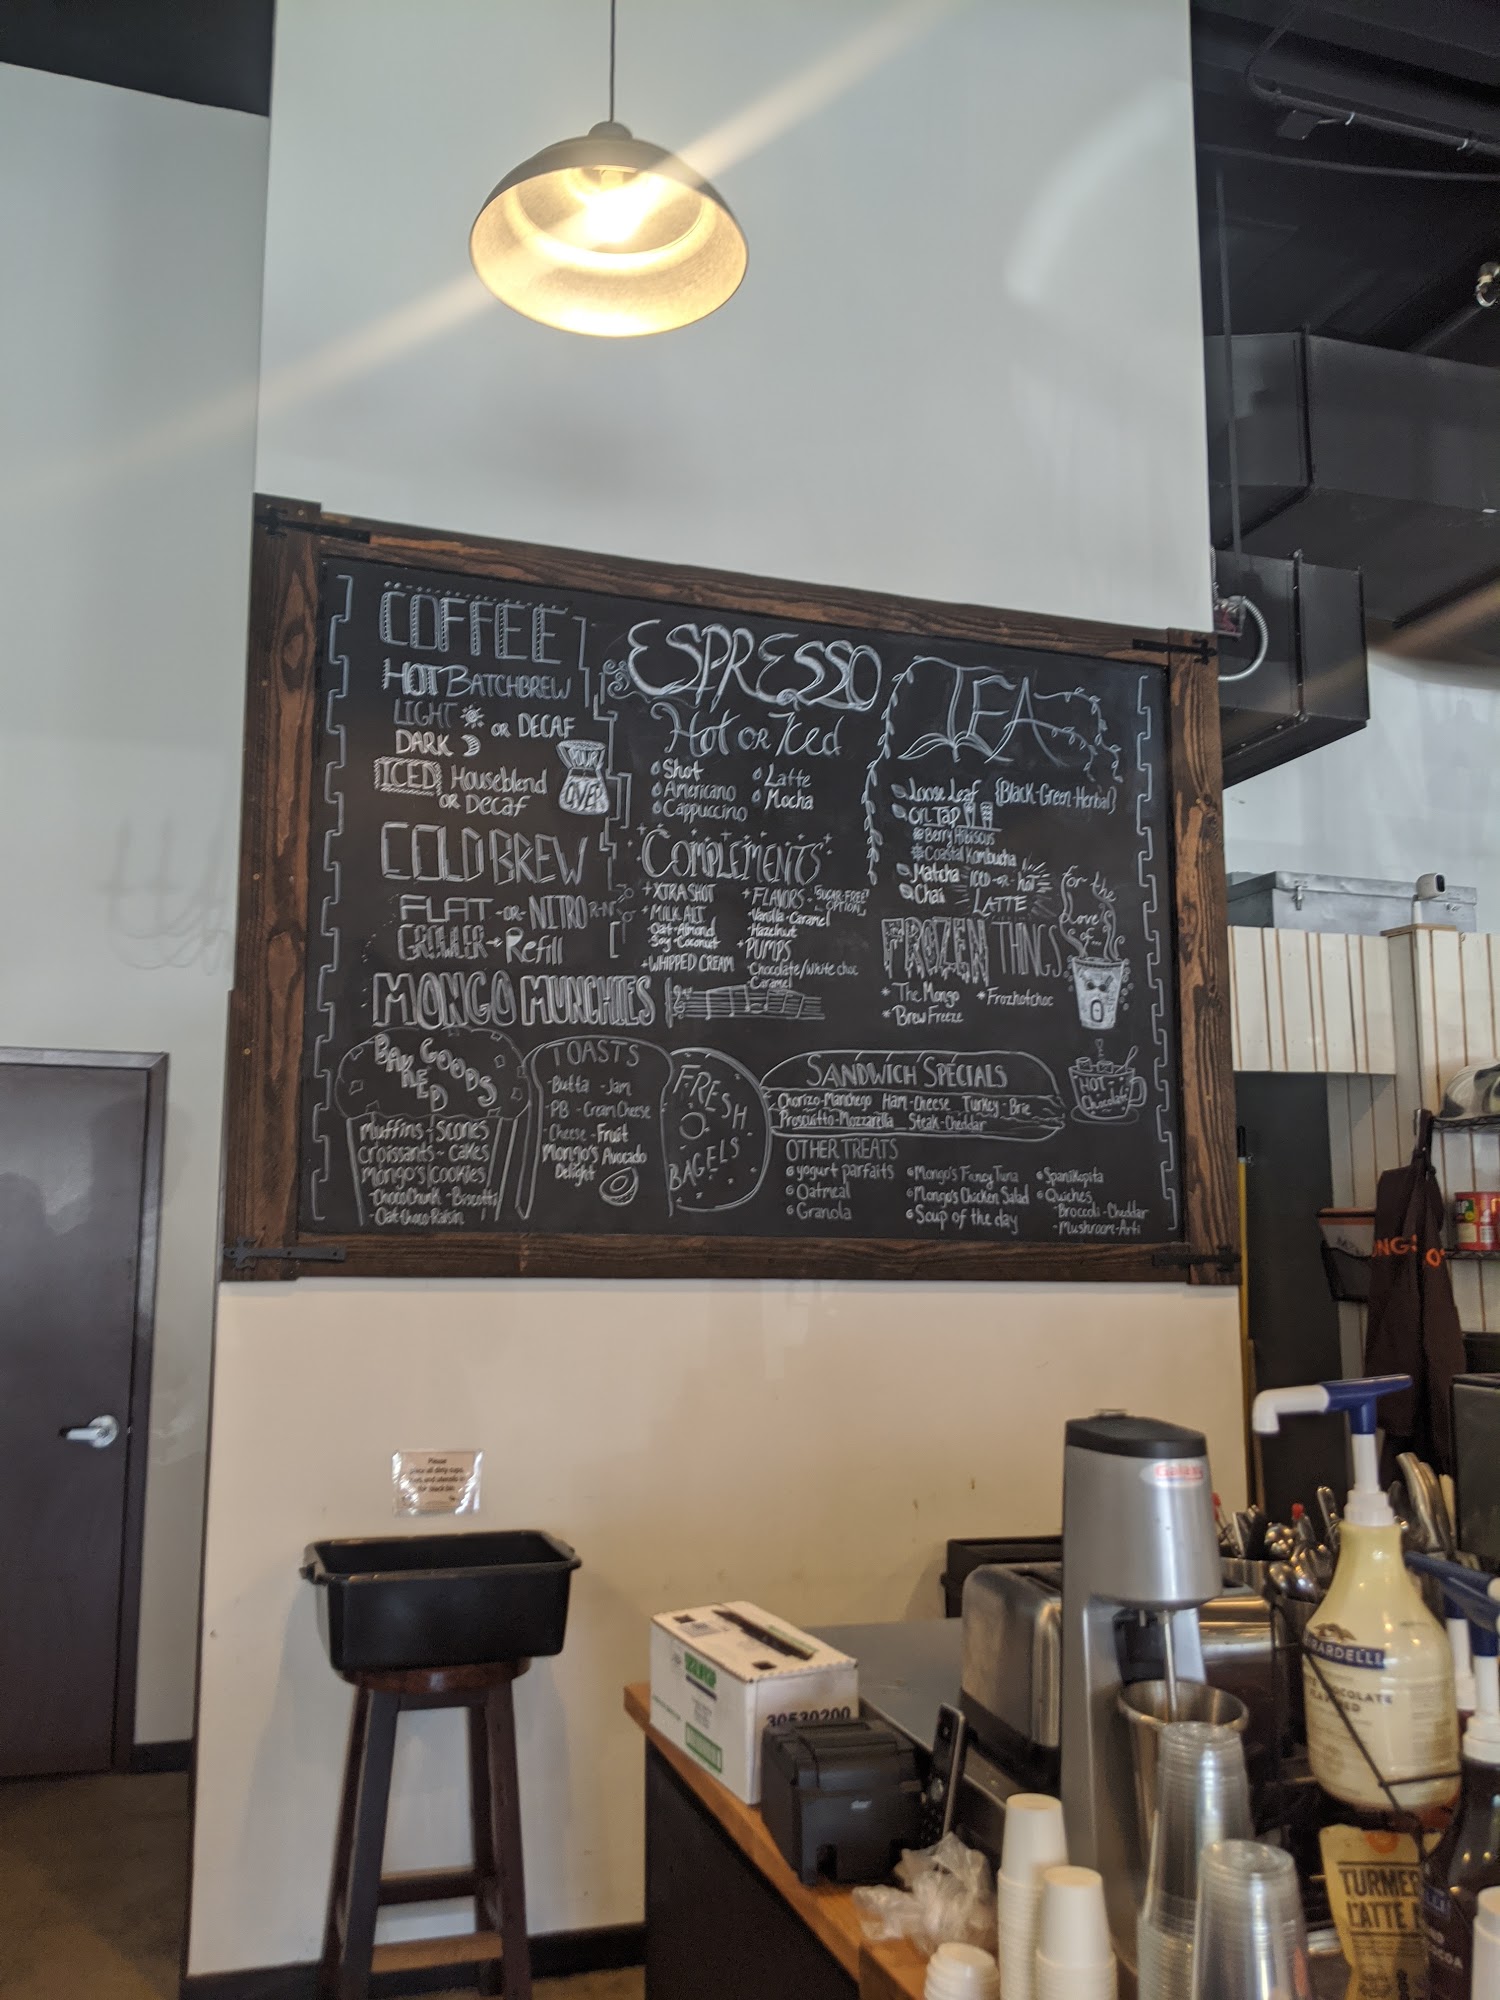 COFFEE
HOT BATCHBREW
LIGHT OR DECAF
DARK
ICED Houseblend
OR Decaf
POUR
OVER
COLD BREW
FLAT -OR- NITRO
GROWLER → Refill
ESPRESSO
Hot OR Iced
Shot
Americano
Cappuccino
Latte
Mocha
COMPLEMENTS
+ XTRA SHOT
+ MILK ALT
Oat-Almond
Soy-Coconut
+ WHIPPED CREAM
+ FLAVORS - SUGAR-FREE OPTION
-Vanilla-Caramel
-Hazelnut
+ PUMPS
-Chocolate/White choc
-Caramel
TEA
Loose Leaf {Black-Green-Herbal}
ON TAP
Berry Hibiscus
Coastal Kombucha
Matcha - ICED -or- hot
Chai LATTE
FROZEN THINGS
* The Mongo
* Brew Freeze
* Frozhotchoc
For the
Love
of...
HOT
Chocolate
MONGO MUNCHIES
BAKED GOODS
Muffins - Scones
Croissants - Cakes
Mongo's Cookies
-Choco Chunk -Biscotti
-Oat-Choco-Raisin
TOASTS
-Butta -Jam
-PB -Cream Cheese
-Cheese -Fruit
Mongo's Avocado
Delight
FRESH
BAGELS
SANDWICH SPECIALS
Chorizo-Manchego Ham-Cheese Turkey-Brie
Prosciutto-Mozzarella Steak-Cheddar
OTHER TREATS
yogurt parfaits
Oatmeal
Granola
Mongo's Fancy Tuna
Mongo's Chicken Salad
Soup of the day
Spanikopita
Quiches
-Broccoli-Cheddar
-Mushroom-Arti
Please
30530200
Galaxy
star
GHIRARDELLI
CHOCOLATE
TURMER
LATTE